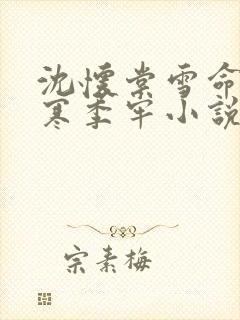 沈懷棠雪命
寒季牢小說
宗素梅